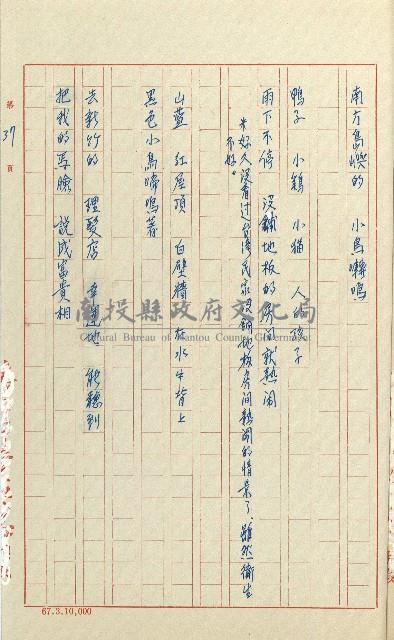 南方島嶼的　小鳥囀鳴
鴨子　小鷄　小猫　人的孩子
雨下不停　沒鋪地板的房间就熱闹
※好久沒看过台湾民家沒鋪地板房间熱闹的情景了、雖然衛生
不好。
山藍　紅屋頂　白壁牆　在水牛背上
黑色小鳥啼鳴著
去新竹的　理髮店　幸運地　能聽到
把我的馬臉　說成富貴相
第37頁
南投縣政府文化局
Cultural Bureau of Nantou Country Government
67.3.10,000